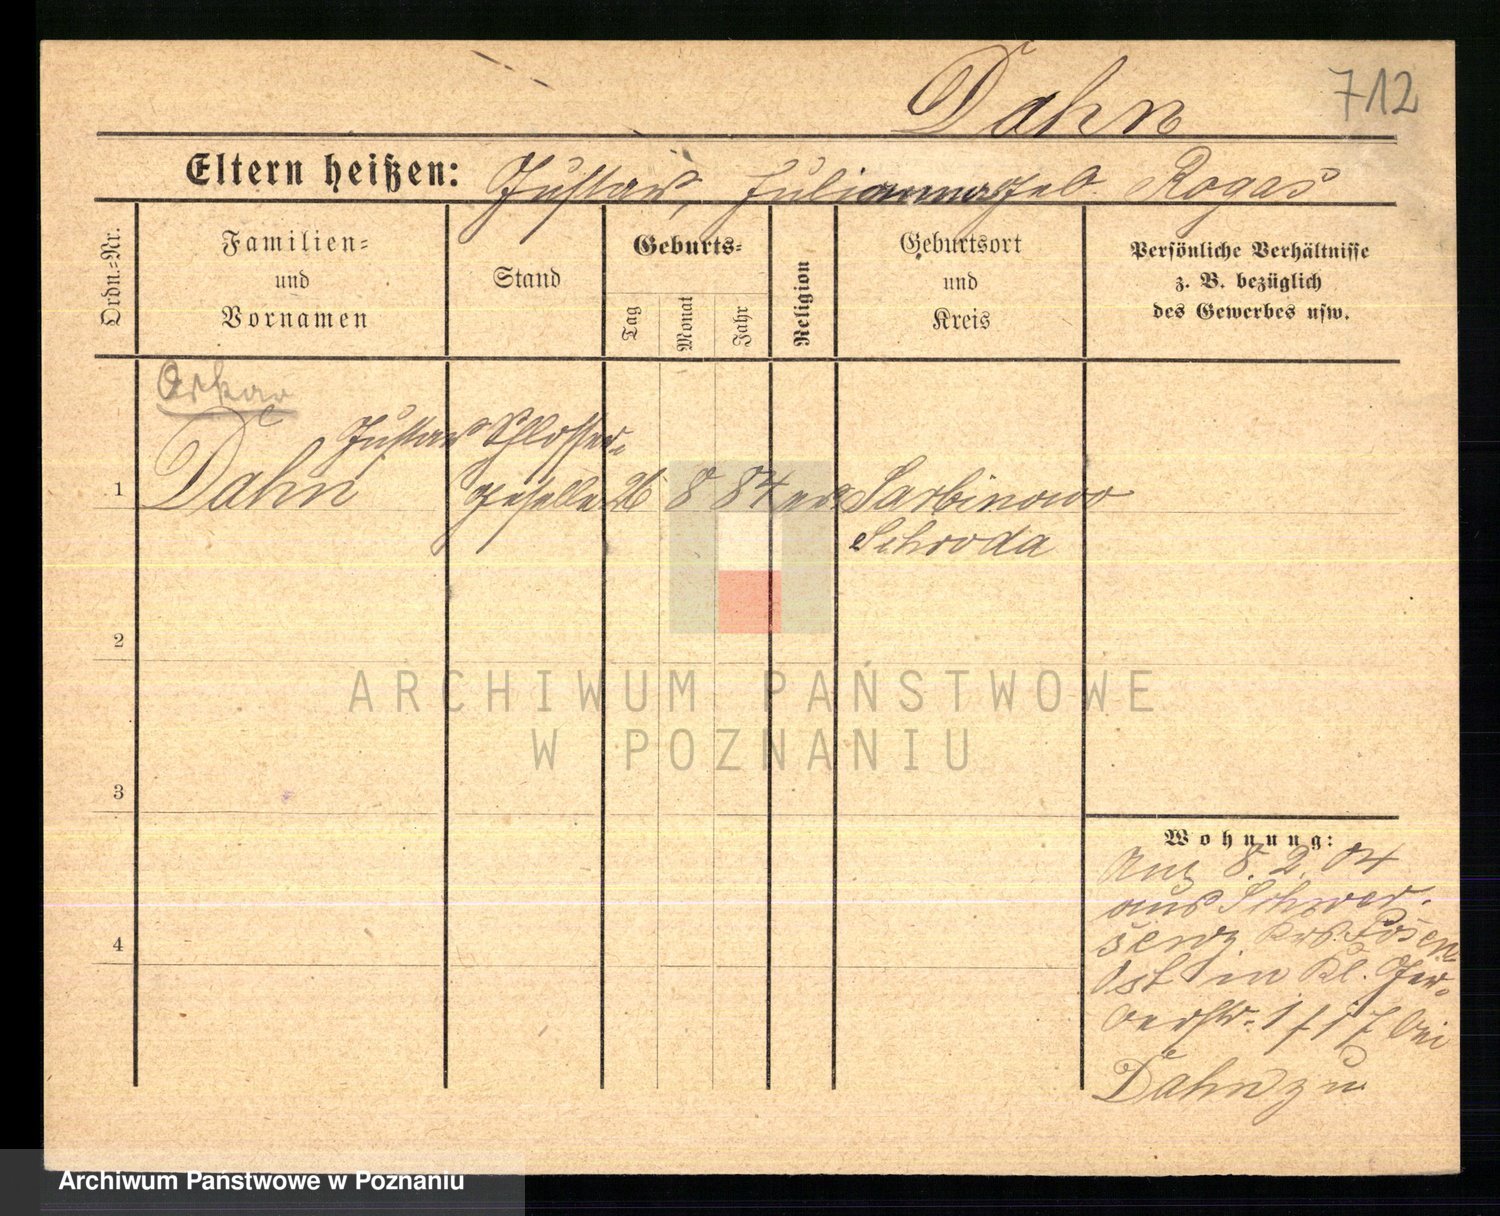 Dahn
712
Eltern heißen: Gustav, Julianna geb. Rogas
Ordn.-Nr.
Familien-
und
Vornamen
Stand
Geburts-
Tag
Monat
Jahr
Religion
Geburtsort
und
Kreis
Persönliche Verhältnisse
z. B. bezüglich
des Gewerbes usw.
Oskar
Gustav Schlosser-
1 Dahn geselle 26 8 84 ev Sarbinowo
Schroda
2
3
4
Wohnung:
Anz 8. 2. 04
aus Schwer-
senz Krs. Posen
Ost in Kl. Ger-
berstr. 1/17 bei
Dahn zu
ARCHIWUM PAŃSTWOWE
W POZNANIU
Archiwum Państwowe w Poznaniu